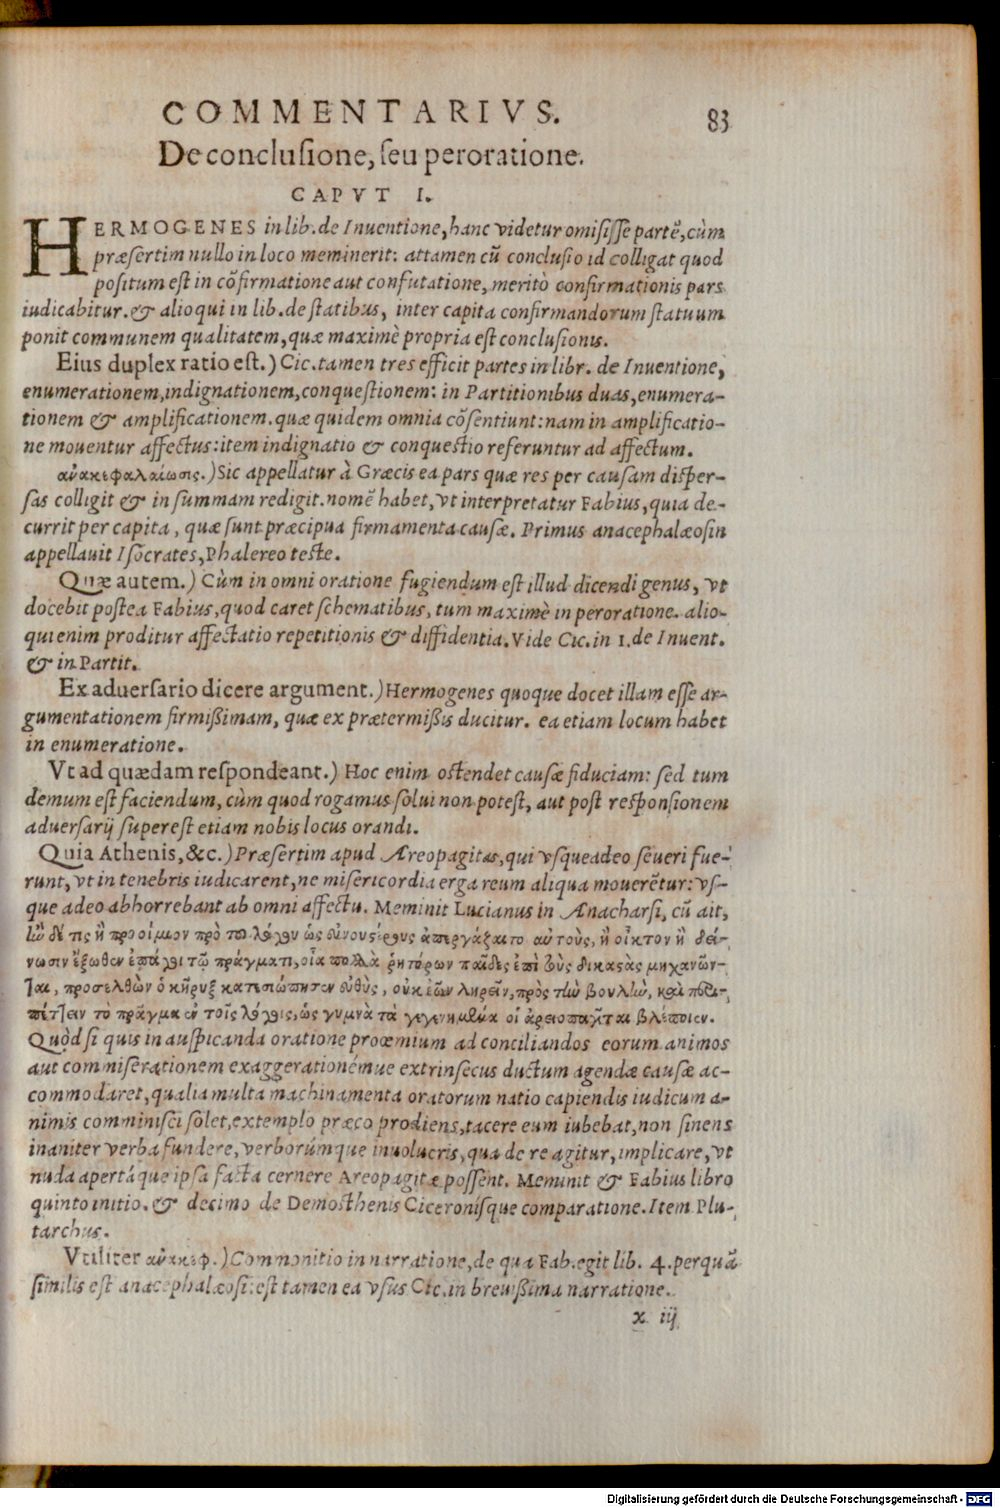 COMMENTARIVS. 83
De conclusione, seu peroratione.
CAPVT I.
HERMOGENES in lib. de Inuentione, hanc videtur omisisse partẽ, cùm
præsertim nullo in loco meminerit: attamen cũ conclusio id colligat quod
positum est in cõfirmatione aut confutatione, meritò confirmationis pars
iudicabitur. & alioqui in lib. de statibus, inter capita confirmandorum statuum
ponit communem qualitatem, quæ maximè propria est conclusionis.
Eius duplex ratio est.) Cic. tamen tres efficit partes in libr. de Inuentione,
enumerationem, indignationem, conquestionem: in Partitionibus duas, enumera-
tionem & amplificationem. quæ quidem omnia cõsentiunt: nam in amplificatio-
ne mouentur affectus: item indignatio & conquestio referuntur ad affectum.
ἀνακεφαλαίωσις.) Sic appellatur à Græcis ea pars quæ res per causam disper-
sas colligit & in summam redigit. nomẽ habet, vt interpretatur Fabius, quia de-
currit per capita, quæ sunt præcipua firmamenta causæ. Primus anacephalæosin
appellauit Isocrates, Phalereo teste.
Quæ autem.) Cùm in omni oratione fugiendum est illud dicendi genus, vt
docebit postea Fabius, quod caret schematibus, tum maximè in peroratione. alio-
qui enim proditur affectatio repetitionis & diffidentia. Vide Cic. in 1. de Inuent.
& in Partit.
Ex aduersario dicere argument.) Hermogenes quoque docet illam esse ar-
gumentationem firmißimam, quæ ex prætermißis ducitur. ea etiam locum habet
in enumeratione.
Vt ad quædam respondeant.) Hoc enim ostendet causæ fiduciam: sed tum
demum est faciendum, cùm quod rogamus solui non potest, aut post responsionem
aduersarij superest etiam nobis locus orandi.
Quia Athenis, &c.) Præsertim apud Areopagitas, qui vsqueadeo seueri fue-
runt, vt in tenebris iudicarent, ne misericordia erga reum aliqua mouerẽtur: vs-
que adeo abhorrebant ab omni affectu. Meminit Lucianus in Anacharsi, cũ ait,
ἢν δέ τις ἢ προοίμιον πρὸ τοῦ λόγου ὡς εὐνουστέρους ἀπεργάζαιτο αὐτοὺς, ἢ οἶκτον ἢ δεί-
νωσιν ἔξωθεν ἐπάγει τῷ πράγματι, οἷα πολλὰ ῥητόρων παῖδες ἐπὶ τοὺς δικαστὰς μηχανῶν-
ται, προσελθὼν ὁ κῆρυξ κατεσιώπησεν εὐθὺς, οὐκ ἐῶν ληρεῖν, πρὸς τὴν βουλὴν, καὶ περι-
πέττειν τὸ πρᾶγμα ἐν τοῖς λόγοις, ὡς γυμνὰ τὰ γεγενημένα οἱ ἀρειοπαγῖται βλέποιεν.
Quòd si quis in auspicanda oratione proœmium ad conciliandos eorum animos
aut commiserationem exaggerationémue extrinsecus ductum agendæ causæ ac-
commodaret, qualia multa machinamenta oratorum natio capiendis iudicum a-
nimis comminisci solet, extemplo præco prodiens, tacere eum iubebat, non sinens
inaniter verba fundere, verborúmque inuolucris, qua de re agitur, implicare, vt
nuda apertáque ipsa facta cernere Areopagitæ possent. Meminit & Fabius libro
quinto initio. & decimo de Demosthenis Ciceronísque comparatione. Item Plu-
tarchus.
Vtiliter ἀνακεφ.) Commonitio in narratione, de qua Fab. egit lib. 4. perquã
similis est anacephalæosi: est tamen ea vsus Cic. in breuißima narratione.
x iij
Digitalisierung gefördert durch die Deutsche Forschungsgemeinschaft - DFG